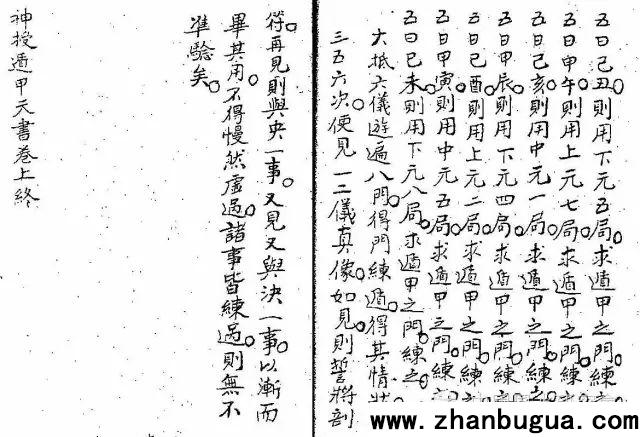 五日己丑則用下元五局。求遁甲之門。練
五日甲午則用上元七局。求遁甲之門。練
五日己亥則用中元一局。求遁甲之門。練之
五日甲辰則用下元四局。求遁甲之門。練
五日己酉則用上元二局。求遁甲之門。練
五日甲寅則用中元五局。求遁甲之門。練
五日己未則用下元八局。求遁甲之門。練之
大抵六儀遊遍八門。得門練遁。得其情狀
三五六次。便見一二儀真像。如見則誓將剖
符。再見則與央一事。又見又與決一事。以漸而
畢其用。不得慢然虛過。諸事皆練過。則無不
準驗矣。
神授遁甲天書卷上終
www.zhanbugua.com